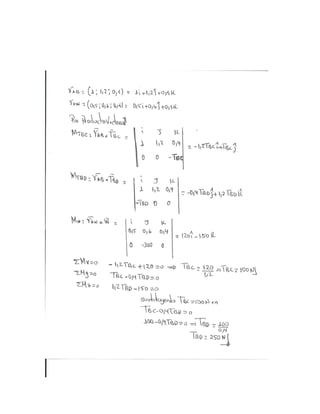 r̄AB = (1; 1,2; 0,4) = 1i+1,2ĵ+0,4k
r̄AW = (0,5; 0,6; 0,4) = 0,5i+0,6ĵ+0,4k
Por Producto vectorial
M̄TBC = r̄AB × T̄BC = | i j k |
| 1 1,2 0,4 | = -1,2TBC î + TBC ĵ
| 0 0 -TBC |
M̄TBD = r̄AB × T̄BD = | i j k |
| 1 1,2 0,4 | = -0,4TBD ĵ + 1,2TBD k̂
| -TBD 0 0 |
M̄W = r̄AW × W̄ = | i j k |
| 0,5 0,6 0,4 | = 120î - 150k
| 0 -300 0 |
ΣMx=0 -1,2TBC+120=0 ⇒ TBC = 120/1,2 ⇒ TBC = 100N
ΣMy=0 TBC-0,4TBD=0
ΣMz=0 1,2TBD-150=0
TBC=100N en
TBC-0,4TBD=0
100-0,4TBD=0 ⇒ TBD = 100/0,4
TBD = 250N